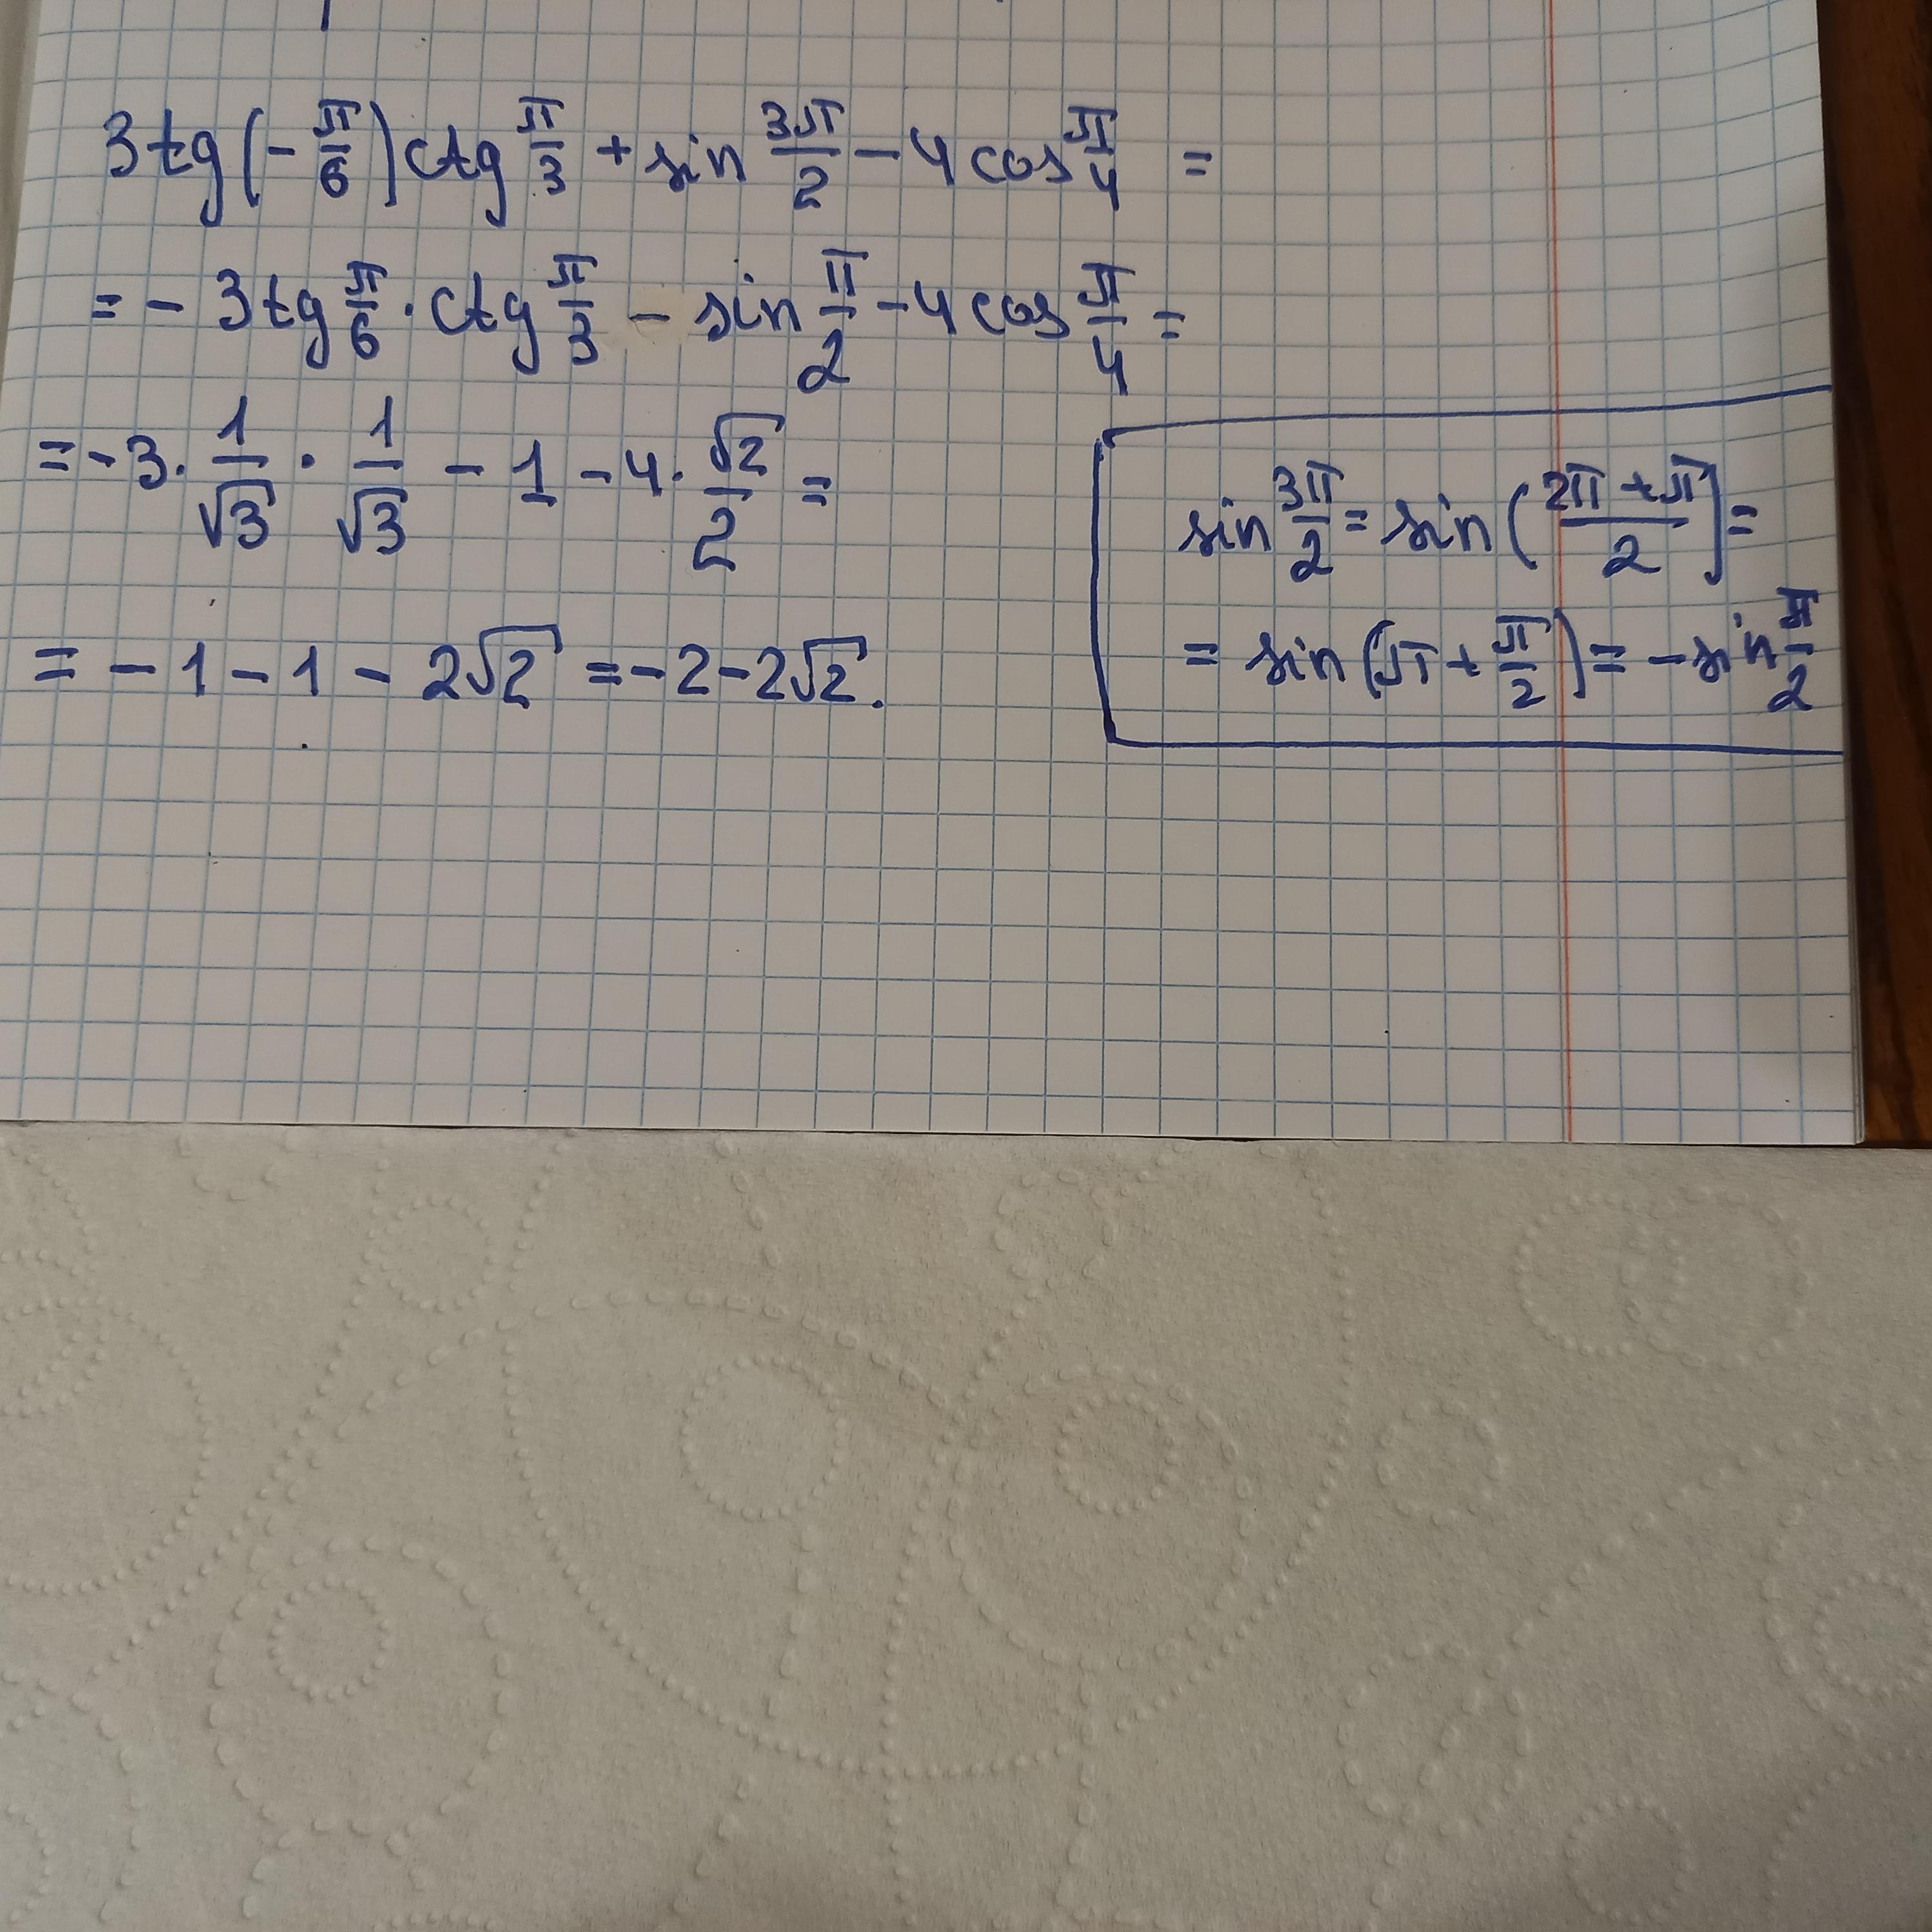 3tg(-π/6)ctg π/3 + sin 3π/2 - 4cos π/4 =
= - 3tg π/6 · ctg π/3 - sin π/2 - 4cos π/4 =
= -3 · 1/√3 · 1/√3 - 1 - 4 · √2/2 =
= - 1 - 1 - 2√2 = -2 - 2√2.
sin 3π/2 = sin (2π + π/2) =
= sin (π + π/2) = - sin π/2